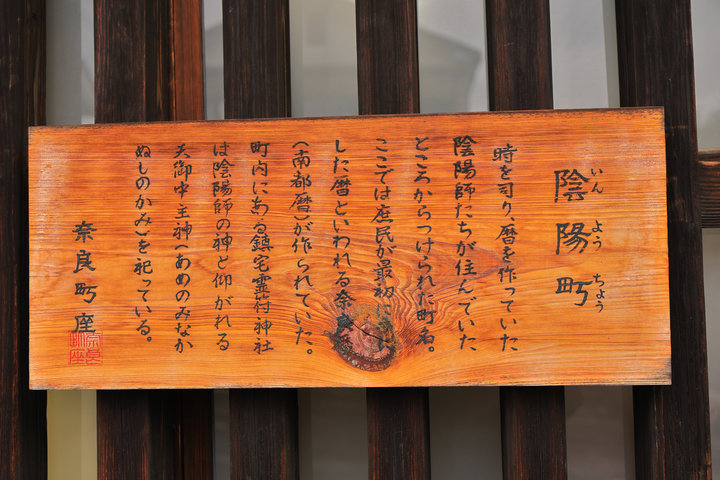 陰陽町
いん よう ちょう
時を司り、暦を作っていた
陰陽師たちが住んでいた
ところからつけられた町名。
ここでは庶民が最初に
した暦といわれる奈
(南都暦)が作られていた。
町内にある鎮宅霊符神社
は陰陽師の神と仰がれる
天御中主神(あめのみなか
ぬしのかみ)を祀っている。
奈良町座
奈良町座